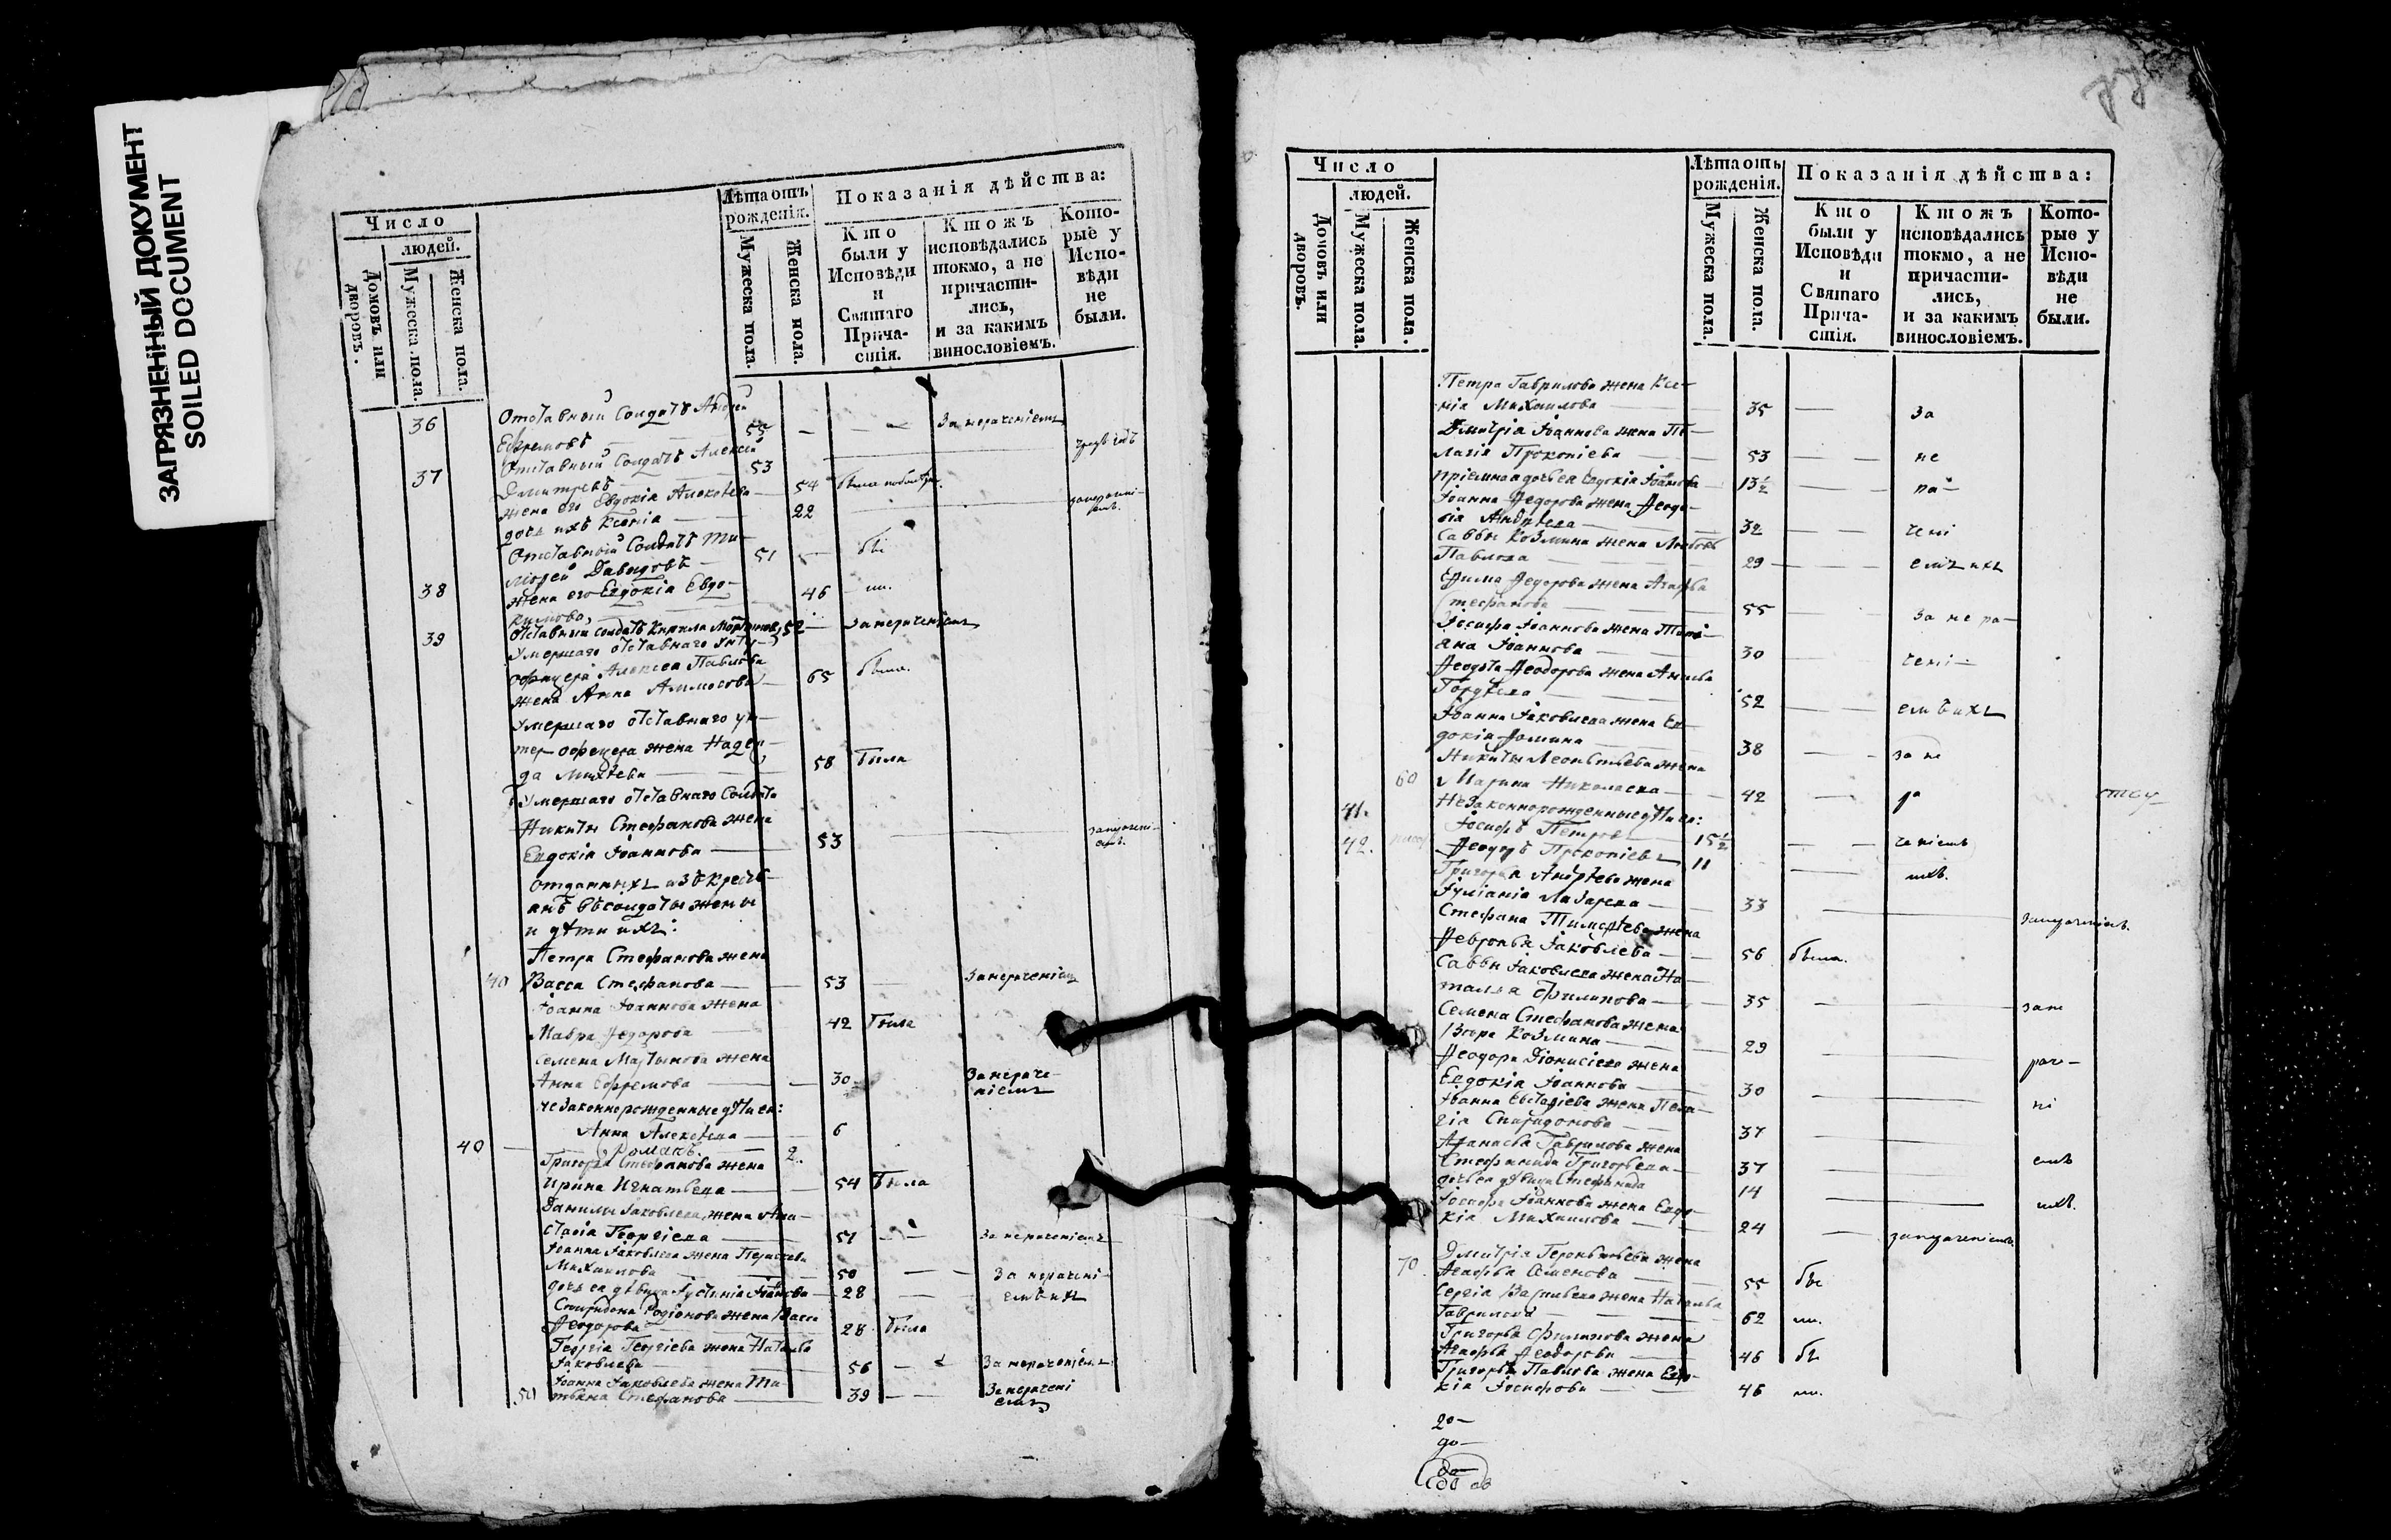 ЗАГРЯЗНЕННЫЙ ДОКУМЕНТ
SOILED DOCUMENT
Число
людей.
Домовъ или дворовъ.
Мужеска пола.
Женска пола.
Лѣта отъ рожденія.
Мужеска пола.
Женска пола.
Показанія дѣйства:
Кто были у Исповѣди и Святаго Причастія.
Ктожъ исповѣдались токмо, а не причастились, и за какимъ винословіемъ.
Которые у Исповѣди не были.
36 Отставный Солдатъ Андрей
Ефремовъ 55 За нераченіемъ
37 Отставный Солдатъ Алексѣй
Дмитревъ 53
жена его Евдокія Алексѣева 54
дочь ихъ Ксенія 22
Отставный Солдатъ Ти-
мофей Давыдовъ 51 бы
38 жена его Евдокія Евдо-
кимова 46 ли.
39 отставный солдатъ Кирила Мартыновъ 52 за нераченіемъ
Умершаго отставнаго Унтер
офицера Алексея Павлова
жена Анна Аммосова 65 была.
Умершаго отставнаго ун-
тер офицера жена Надеж-
да Михеева 58 была
Умершаго отставнаго Солдата
Никиты Стефанова жена
Евдокія Іоаннова 53
отданныхъ изъ крестъ-
янъ въ солдаты жены
и дѣти ихъ:
Петра Стефанова жена
40 Васса Стефанова 53 За нераченіемъ
Іоанна Іоаннова жена
Мавра Федорова 42 была
Семена Мартынова жена
Анна Ефремова 30 За нераче-
ніемъ
незаконнорожденные дѣти ея:
Анна Алексѣева 6
40 Романъ. 2
Григорья Стефанова жена
Ирина Игнатьева 54 была
Данилы Іаковлева жена Ана-
стасія Георгіева 51 За нераченіемъ
Іоанна Іаковлева жена Пераскева
Михаилова 50 За нерачені-
дочь ея дѣвица Іустинія Іоаннова 28 емъ ихъ
Спиридона Родіонова жена Васса
Феодорова 28 была
Георгія Георгіева жена Наталья
Іаковлева 56 За нераченіемъ
Іоанна Іаковлева жена Та-
50 тьяна Стефанова 39 За нерачені
емъ
Число
людей.
Домовъ или дворовъ.
Мужеска пола.
Женска пола.
Лѣта отъ рожденія.
Мужеска пола.
Женска пола.
Показанія дѣйства:
Кто были у Исповѣди и Святаго Причастія.
Ктожъ исповѣдались токмо, а не причастились, и за какимъ винословіемъ.
Которые у Исповѣди не были.
Петра Гаврилова жена Ксе-
нія Михаилова 35 за
Дмитрія Іоаннова жена Пе-
лагія Прокопіева 53 не
пріемная дочь ея Евдокія Іоаннова 13½ ра-
Іоанна Федорова жена Феодо-
сія Андреева 32 чені
Саввы Козмина жена Любовь
Павлова 29 емъ ихъ
Ефима Федорова жена Агафья
Стефанова 55 За не ра-
Іосифа Іоаннова жена Тати-
ана Іоаннова 30 чені-
Феодота Феодорова жена Анисья
Гордѣева 52 емъ ихъ
Іоанна Іаковлева жена Ев-
докія Фомина 38 за не
Никиты Леонтьева жена
60 Марина Николаева 42 ра
41. Незаконнорожденные дѣти ея:
Іосифъ Петровъ 15½ ченіемъ
42. Феодоръ Прокопіевъ 11 ихъ.
Григорья Андреева жена
Іуліанія Лазарева 33 За нераченіемъ.
Стефана Тимофѣева жена
Февронья Іаковлева 56 была.
Саввы Іаковлева жена На-
талья Филипова 35 за не
Семена Стефанова жена
Вѣра Козмина 29 раче-
Феодора Діонисіева жена
Евдокія Іоаннова 30 ні
Іоанна Евстафіева жена Пела-
гія Спиридонова 37
Афанасья Гаврилова жена
Стефанида Григорьева 37 емъ
дочь ея дѣвица Стефанида 14 ихъ.
Іосифа Іоаннова жена Евдо-
кія Михаилова 24 за нераченіемъ.
Дмитрія Терентьева жена
70 Агафья Семенова 55 бы
Сергія Васильева жена Наталья
Гаврилова 62 ли.
Григорья Филипова жена
Агафья Феодорова 46 бы
Григорья Павлова жена Евдо-
кія Іосифова 46 ли.